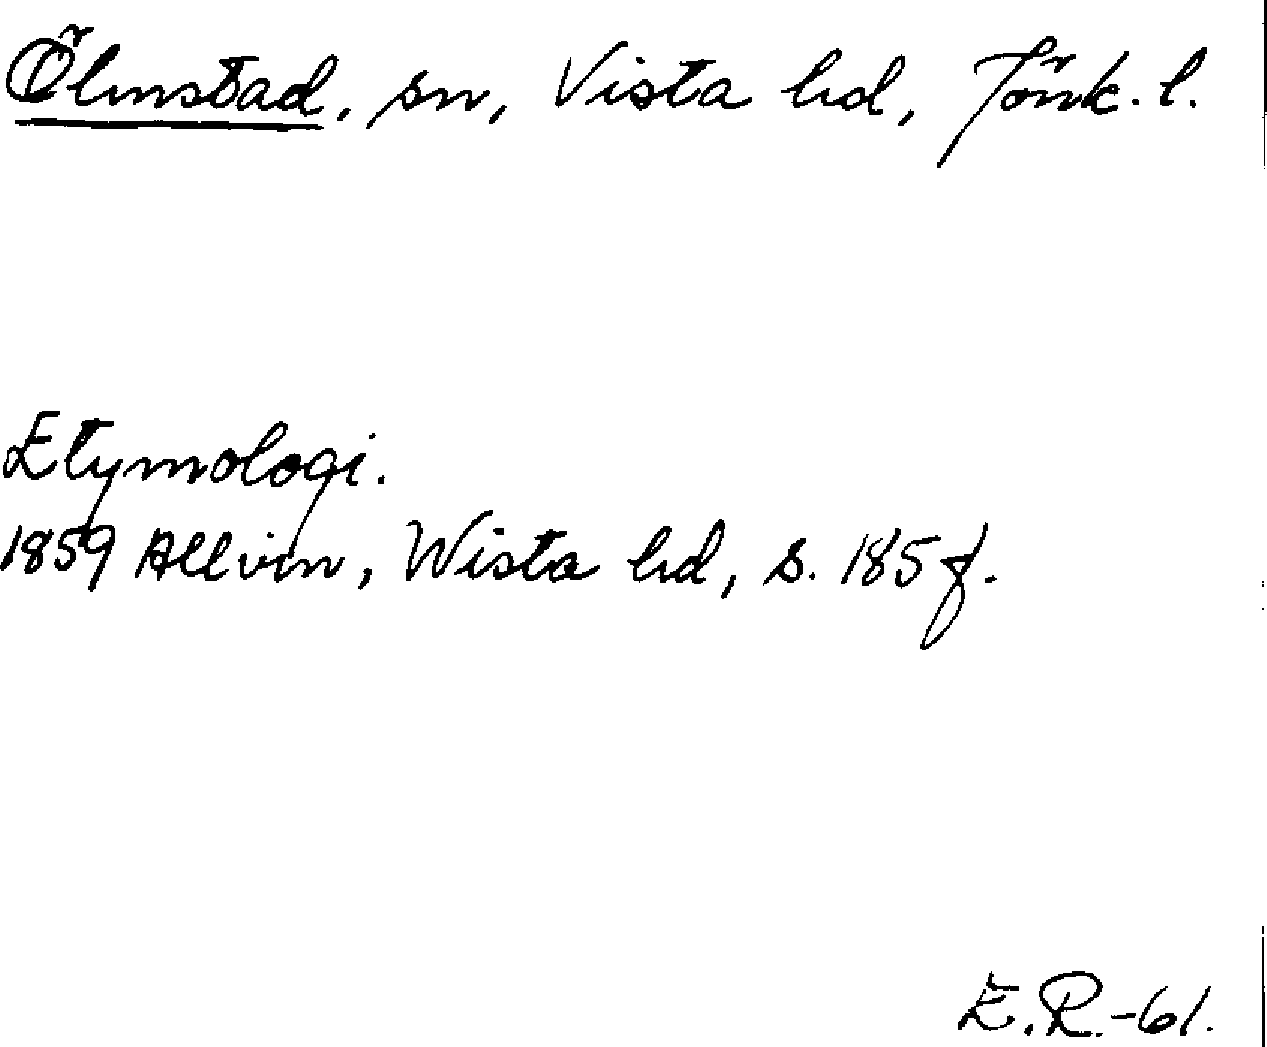 Ölmstad, sn, Vista hd, Jönk. l.
Etymologi.
1859 Allvin, Wista hd, s. 185 f.
E.R.-61.